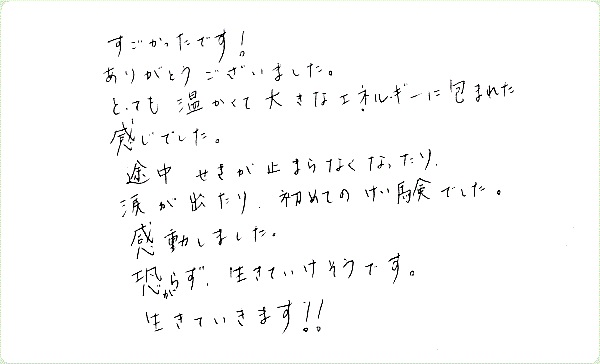 すごかったです!
ありがとうございました。
とても 温かくて 大きなエネルギーに包まれた
感じでした。
途中 せきが止まらなくなったり、
涙が出たり、初めてのけい験でした。
感動しました。
恐がらず、生きていけそうです。
生きていきます!!